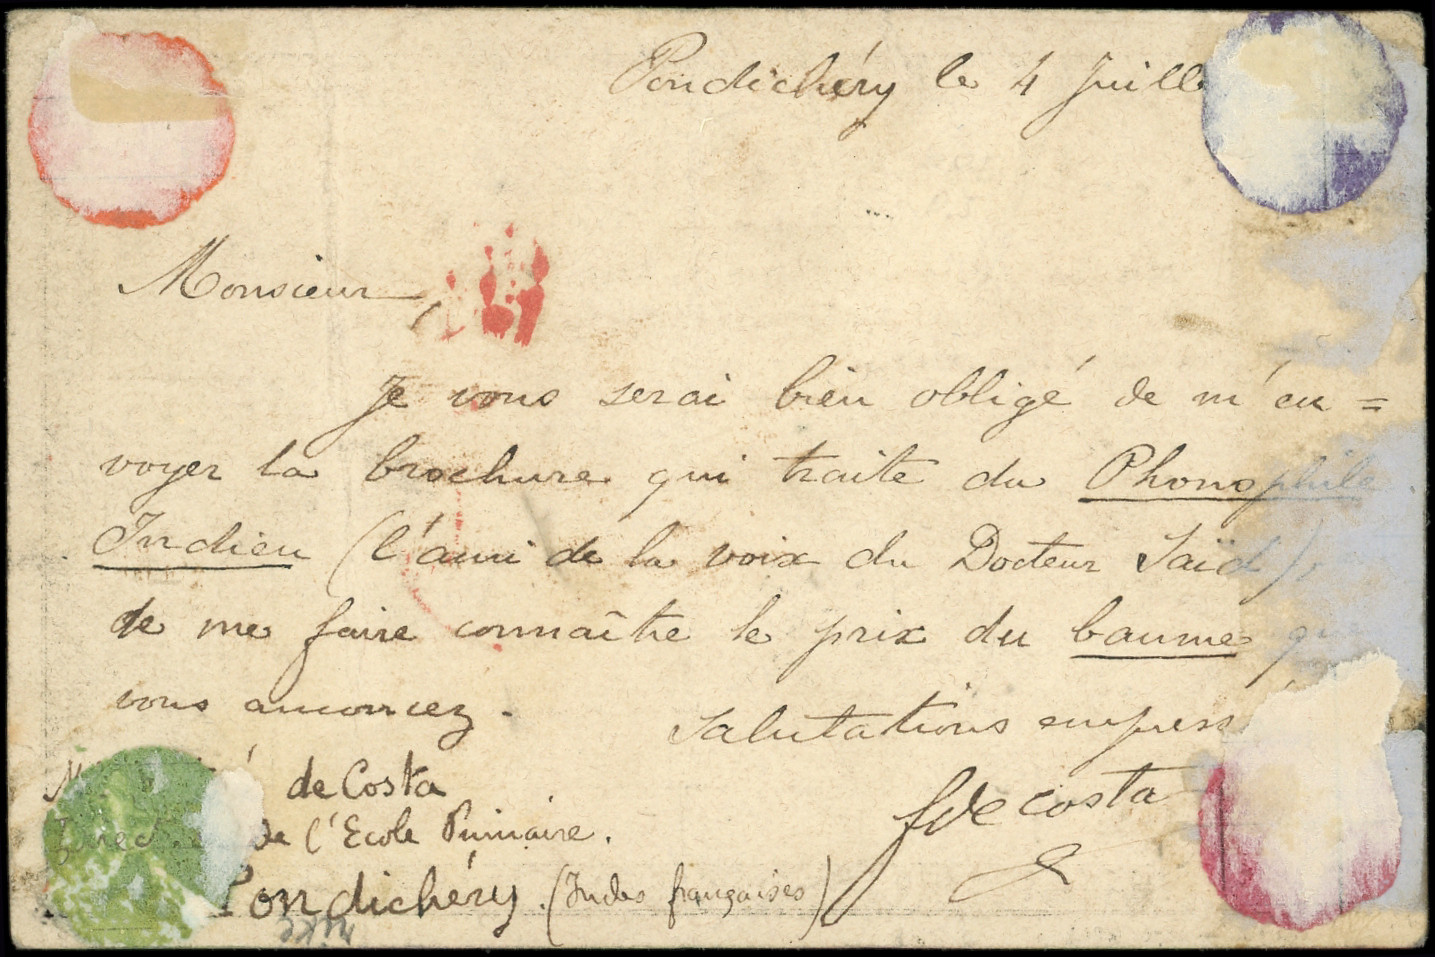 Pondichéry le 4 Juill
Monsieur,
Je vous serai bien obligé de m'en=
voyer la brochure qui traite du Phonophile
Indien (l'ami de la voix du Docteur Saïd),
de me faire connaître le prix du baume que
vous annoncez.
Salutations empres
de Costa
fdecosta
de l'Ecole Primaire.
Pondichéry. (Indes françaises)